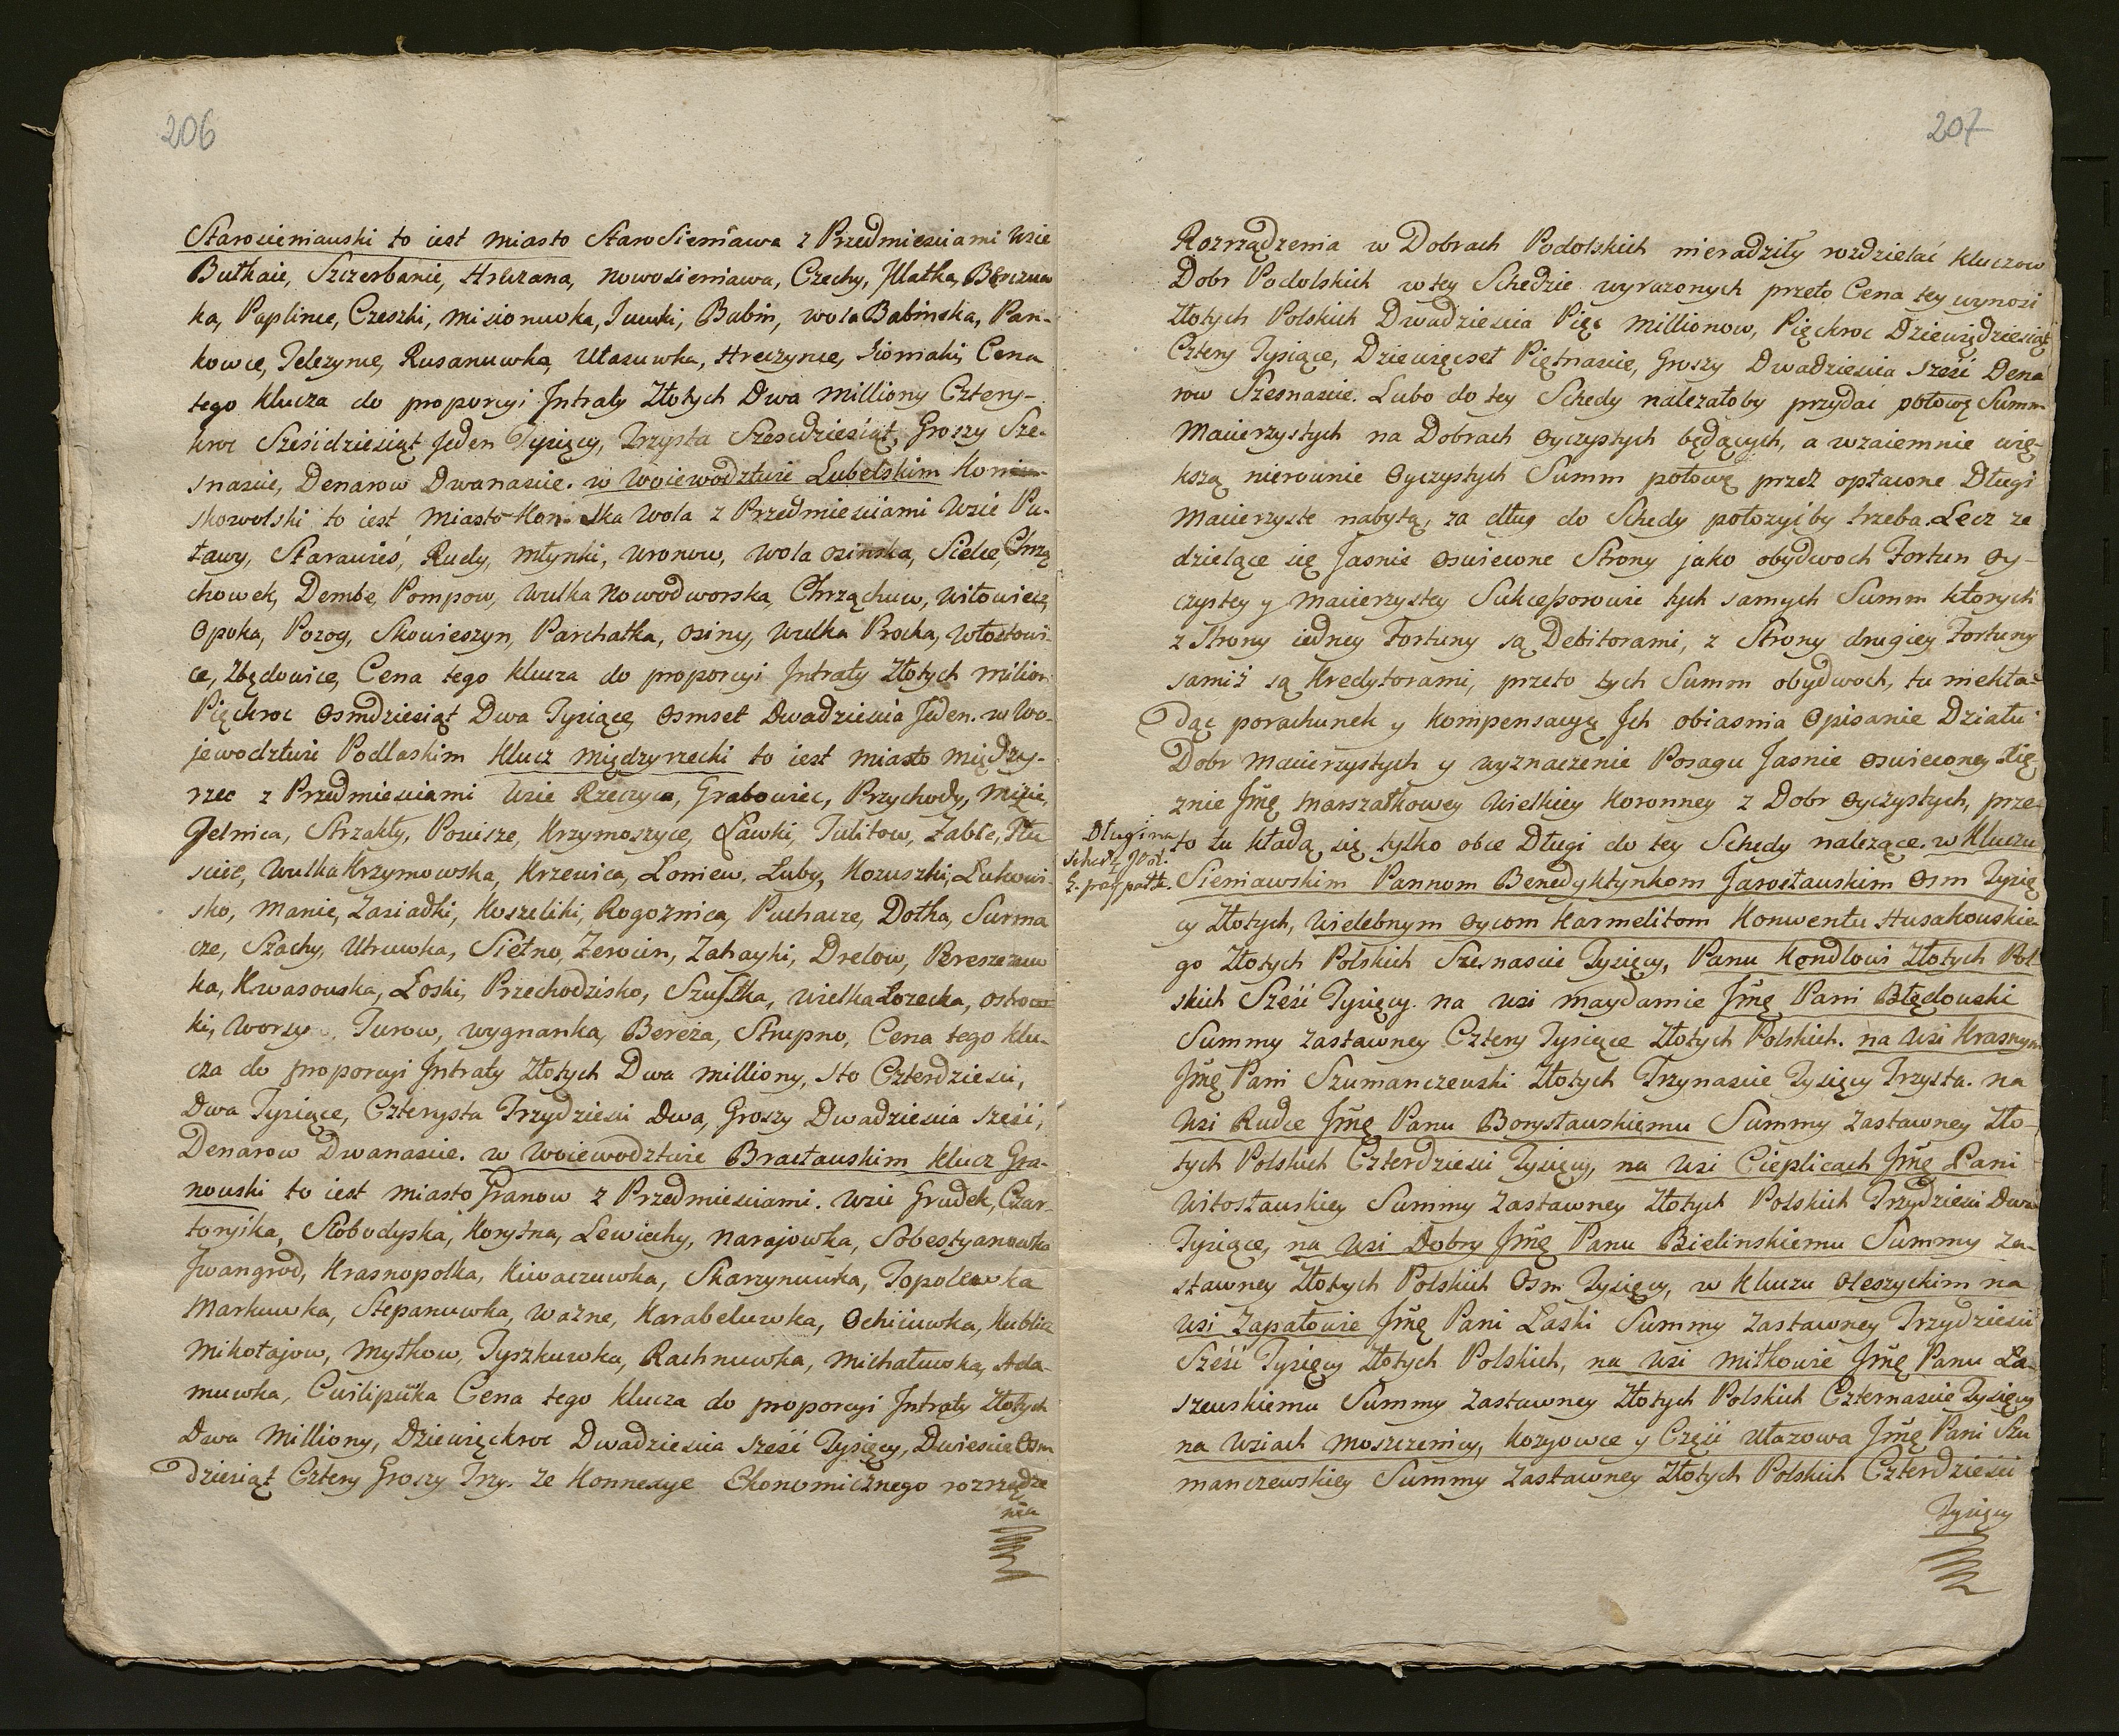 206
Starosieniauski to iest Miasto StaroSieniawa z Przedmiesciami Wsie
Butkaie, Szczerbanie, Hreczana, Nowosieniawa, Czechy, Jllatka, Berczuw
ka, Paplince, Czeszki, Misionuwka, Iuuski, Babin, Wola Babinska, Pan-
kowce, Telezynce, Rusanuwka, Utasuwka, Hreczynce, Cena
tego Klucza do proporcyi Jntraty Złotych Dwa Milliony Cztery-
kroc Sześćdziesiąt Jeden Tysięcy, Trzysta Szescdziesiąt, Groszy Sze-
snascie, Denarow Dwanascie. w Woiewodztwie Lubelskim Koni-
skowolski to iest Miasto Kon-ska Wola z Przedmiesciami Wsie Pu-
ławy, Starawieś, Rudy, Młynki, Wronow, Wola Osinska, Sielce, Chrzą
chowek, Dembe, Pompow, Wulka Nowodworska, Chrząchuw, Witowice,
Opoka, Pozog, Skowieszyn, Parchatka, Osiny, Wulka Procha, Włostowi-
ce, Zbędowice, Cena tego Klucza do proporcyi Jntraty Złotych Milion
Pięckroc Osmdziesiąt Dwa Tysiące, Osmset Dwadziescia Jeden. w Wo-
jewodztwie Podlaskim Klucz Międzyrzecki to iest Miasto Między-
rzec z Przedmiesciami Wsie Rzeczyca, Grabowiec, Przychody, Misie,
Jelnica, Strzakły, Pouisze, Krzymoszyce, Ławki, Tulitow, Zabce, Tłu
scie, Wulka Krzymowska, Krzewica, Łoniew, Łuby, Kozuszki, Łukowi-
sko, Manie, Zasiadki, Koszeliki, Rogoznica, Puchacze, Dołha, Surma
cze, Szachy, Utruwka, Sietno, Zerocin, Zahayki, Drelow, Pereszczuw
ka, Kwasouska, Łoski, Przechodzisko, Szustka, Wielka Łozecka, Ostrow
ki, Worsy, Turow, Wygnanka, Bereza, Strupno, Cena tego Klu-
cza do proporcyi Jntraty Złotych Dwa Milliony, Sto Czterdziesci,
Dwa Tysiące, Czterysta Trzydziesci Dwa, Groszy Dwadziescia Sześć,
Denarow Dwanascie. w Woiewodztwie Bracłauskim Klucz Gra-
nouski to iest Miasto Granow z Przedmiesciami. Wsie Grudek, Czar-
toryska, Słobodyska, Korytna, Lewiechy, Narajowka, Sobestyanowka
Jwangrod, Krasnopolka, Kiwaczuwka, Skarzynuwka, Topolewka
Markuwka, Stepanuwka, Wazne, Karabeluwka, Ochiciuwka, Kublicz
Mikołajow, Mytkow, Tyszkuwka, Rachnuwka, Michałuwka, Ada-
muwka, Cwilipuwka Cena tego Klucza do proporcyi Jntraty Złotych
Dwa Milliony, Dziewięckroc Dwadziescia Sześć Tysięcy, Dwiescie Osm
dziesiąt Cztery Groszy Trzy. Ze Konnexye Ekonomicznego rozrządze
nia
207
Rozrządzenia w Dobrach Podolskich nieradziły rozdzielać Kluczow
Dobr Podolskich w tey Schedzie wyrazonych przeto Cena tey wynosi
Złotych Polskich Dwadziescia Pięc Millionow, Pięckroc Dziewiędziesiąt
Cztery Tysiące, Dziewięcset Piętnascie, Groszy Dwadziescia Sześć Dena
row Szesnascie. Lubo do tey Schedy nalezałoby przydać połowę Summ
Macierzystych na Dobrach Oyczystych będących, a wzaiemnie wię-
kszą nierownie Oyczystych Summ połowę przez opłacone Długi
Macierzyste nabytą, za dług do Schedy połozyćby trzeba. Lecz ze
dzielące się Jasnie Oswiecone Strony jako obydwoch Fortun Oy-
czystey y Macierzystey Sukcessorowie tych samych Summ ktorych
z Strony iedney Fortuny są Debitorami, z Strony drugiey Fortuny
samiż są Kredytorami, przeto tych Summ obydwoch, tu niekła-
dąc porachunek y Kompensacyę Jch obiasnia Opisanie Działu
Dobr Macierzystych y wyznaczenie Posagu Jasnie Oswieconey Się
znie Jmę Marszałkowey Wielkiey Koronney z Dobr Oyczystych, prze-
Długi na
to tu kładą się tylko obce Długi do tey Schedy nalezące. w Kluczu
Sieniawskim Pannom Benedyktynkom Jarosłauskim Osm Tysię
cy Złotych, Wielebnym Oycom Karmelitom Konwentu Husakouskie-
go Złotych Polskich Szesnascie Tysięcy, Panu Kondlowi Złotych Pol-
skich Sześć Tysięcy. na Wsi Maydanie Jmę Pani Błędouski
Summy Zastawney Cztery Tysiące Złotych Polskich. na Wsi Krasnym
Jmę Pani Szumanczeuski Złotych Trzynascie Tysięcy Trzysta. na
Wsi Rudce Jmę Panu Borysłauskiemu Summy Zastawney Zło-
tych Polskich Czterdziesci Tysięcy, na Wsi Cieplicach Jmę Pani
Witosłauskiey Summy Zastawney Złotych Polskich Trzydziesci Dwa
Tysiące, na Wsi Dobry Jmę Panu Bielinskiemu Summy Za-
stawney Złotych Polskich Osm Tysięcy, w Kluczu Oleszyckim na
Wsi Zapałowie Jmę Pani Łaski Summy Zastawney Trzydziesci
Sześć Tysięcy Złotych Polskich, na Wsi Miłkowie Jmę Panu Ła-
szeuskiemu Summy Zastawney Złotych Polskich Czternascie Tysięcy
na Wsiach Moszczenicy, Kozyowce y Częsci Ułazowa Jmę Pani Szu
manczewskiey Summy Zastawney Złotych Polskich Czterdziesci
Tysięcy